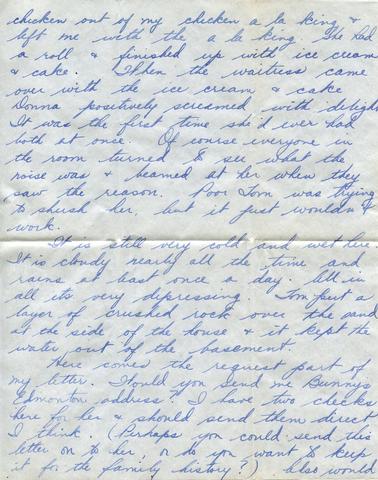 chicken out of my chicken a la king &
left me with the a la king. She had
a roll & finished up with ice cream
& cake. When the waitress came
over with the ice cream & cake
Donna positively screamed with delight
It was the first time she'd ever had
both at once. Of course everyone in
the room turned to see what the
noise was & beamed at her when they
saw the reason. Poor Tom was trying
to shush her, but it just wouldn't
work.
It is still very cold and wet here.
It is cloudy nearly all the time and
rains at least once a day. All in
all its very depressing. Tom put a
layer of crushed rock over the sand
at the side of the house & it kept the
water out of the basement
Here comes the request part of
my letter. Would you send me Bunnys
Edmonton address? I have two checks
here for her & should send them direct
I think. (Perhaps you could send this
letter on to her, or do you want to keep
it for the family history?) Also would